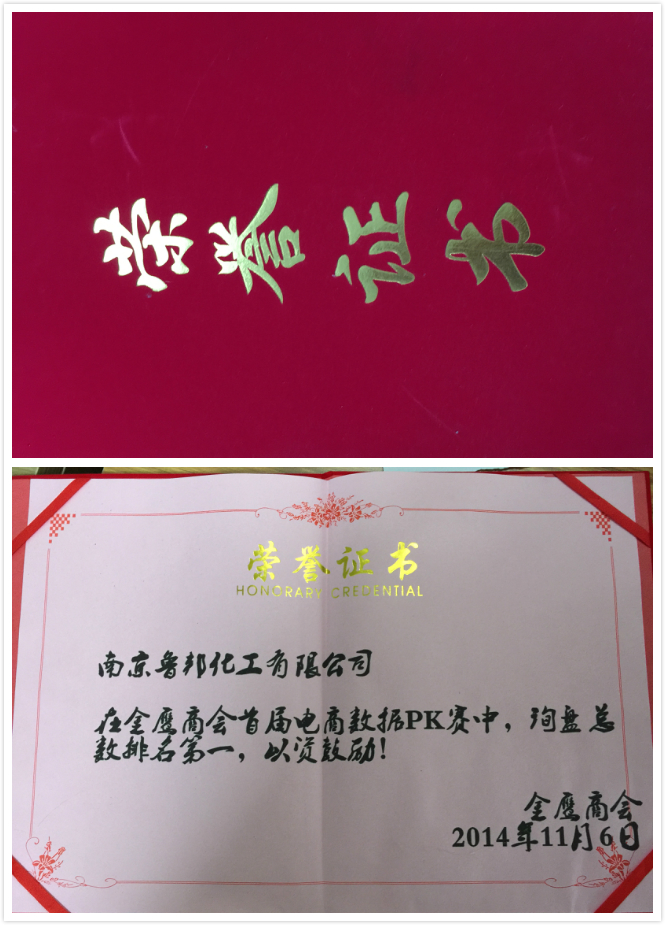 荣誉证书
荣誉证书
HONORARY CREDENTIAL
南京鲁邦化工有限公司
在金鹰商会首届电商数据PK赛中，询盘总
数排名第一，以资鼓励！
金鹰商会
2014年11月6日